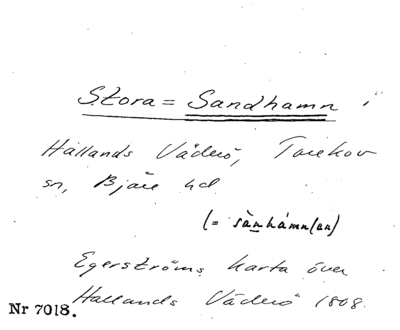 Stora = Sandhamn i
Hallands Väderö, Torekov
sn, Bjäre hd
(= sànhámn(an)
Egerströms karta över
Hallands Väderö 1808.
Nr 7018.